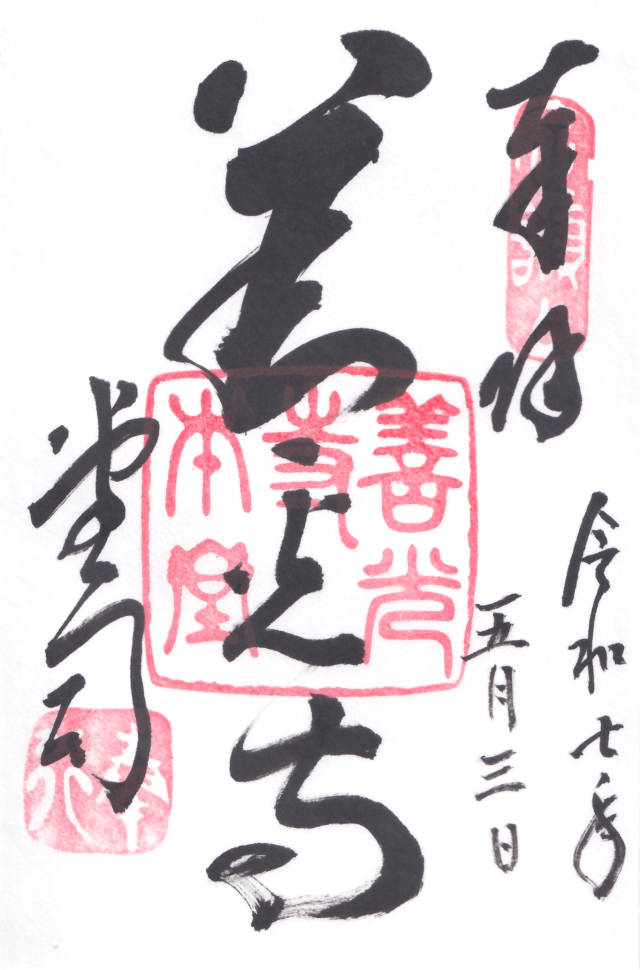 奉拝
令和七年
五月三日
善光寺
堂司
善光
寺
本堂